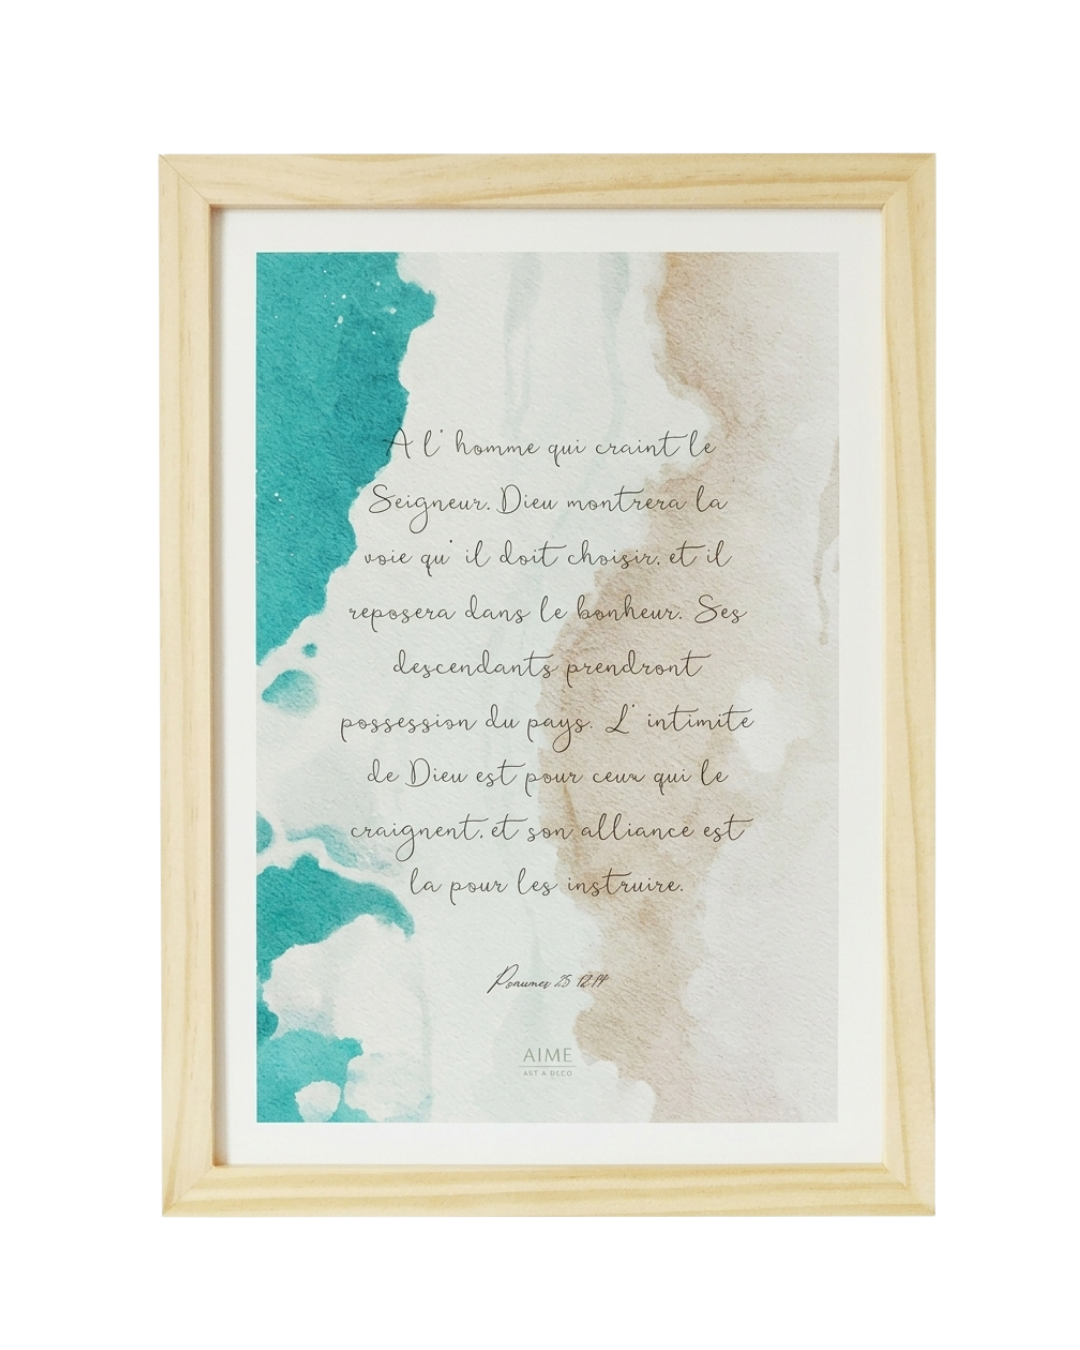 A l' homme qui craint le
Seigneur, Dieu montrera la
voie qu' il doit choisir, et il
reposera dans le bonheur. Ses
descendants prendront
possession du pays. L' intimite
de Dieu est pour ceux qui le
craignent, et son alliance est
la pour les instruire.
25 12-14
AIME
ART & DECO